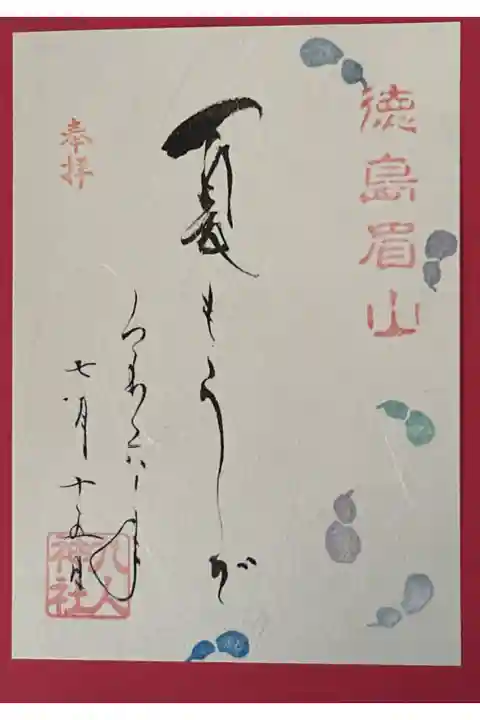 徳島眉山
夏もうで
奉拝
七月十五日
八人
神社